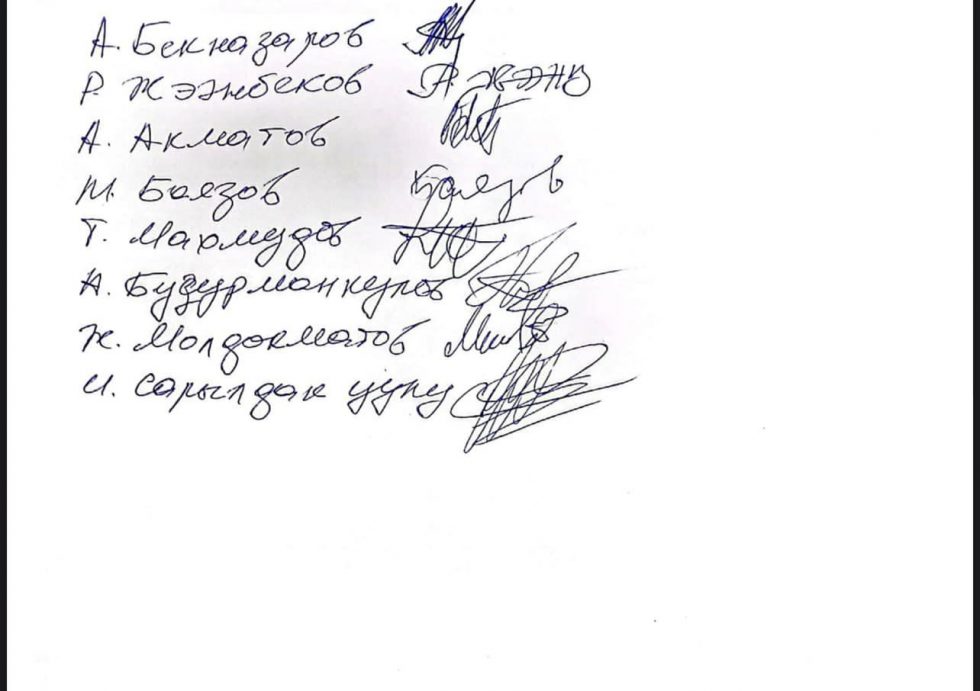 А. Бекназаров
Р. Жээнбеков А. жээнб
А. Акматов
М. Боязов Боязов
Т. Махмудов
А. Будурманкулов
Ж. Молдокматов
И. Сарылдак уулу